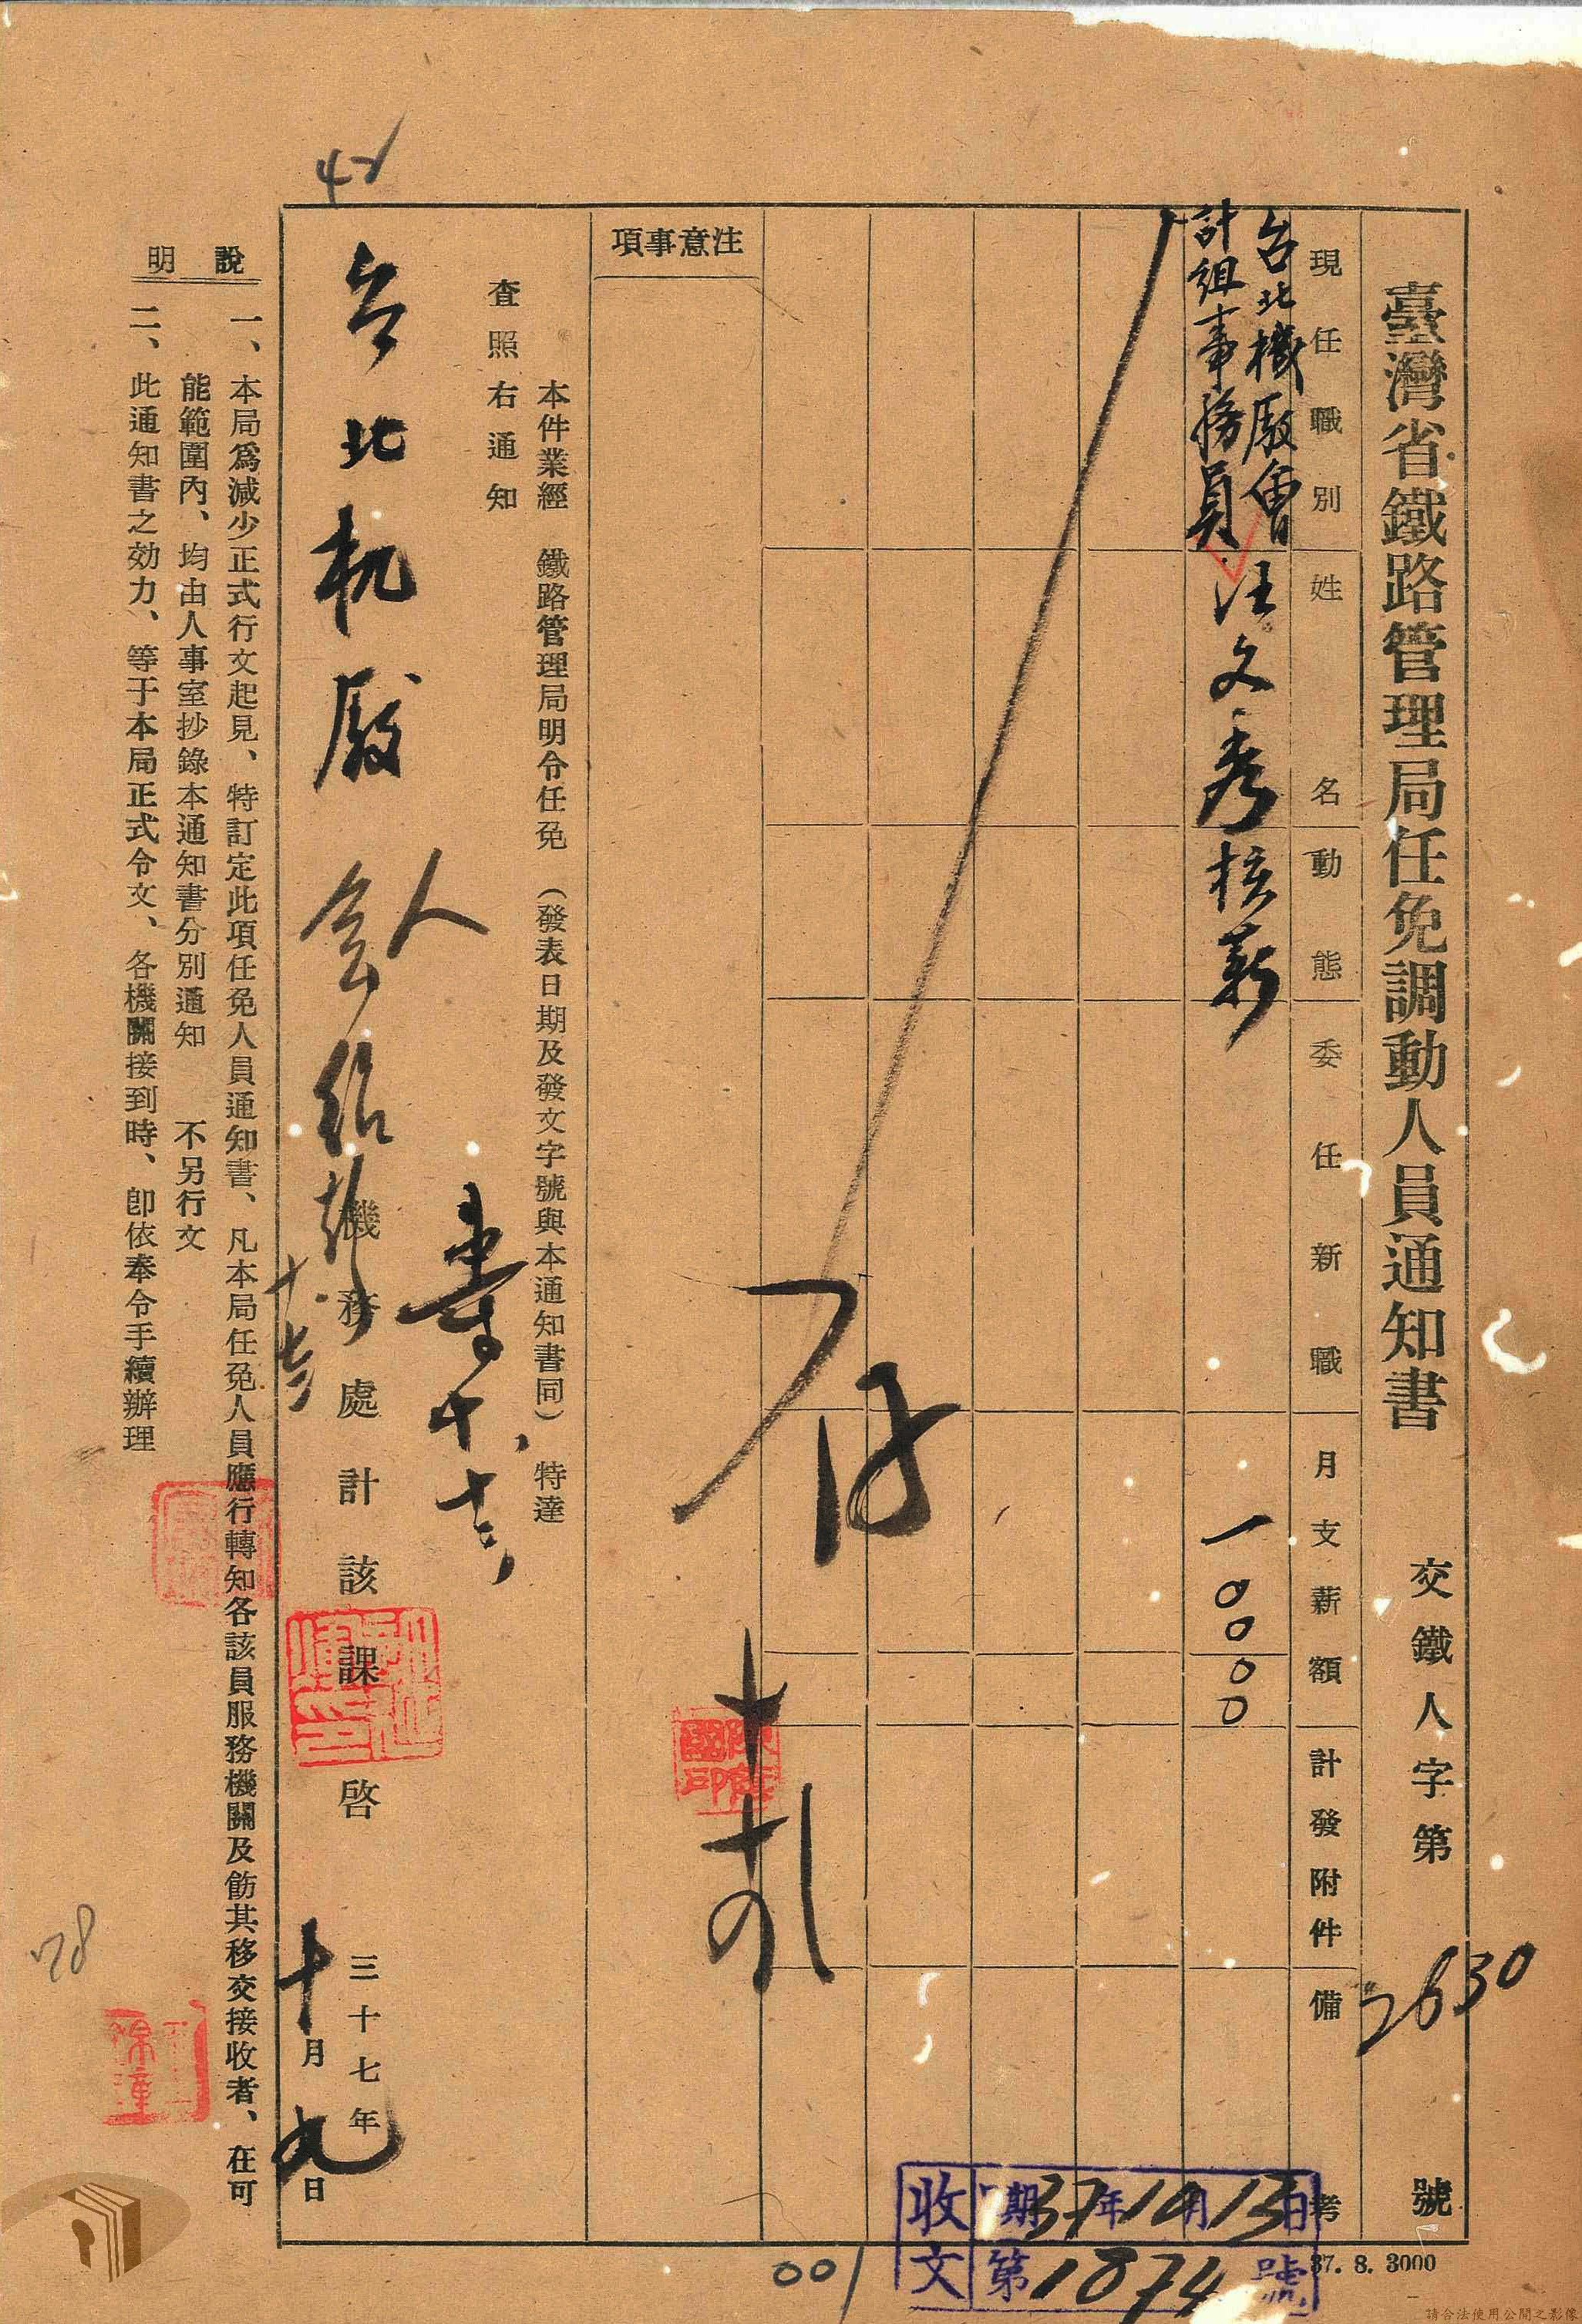 臺灣省鐵路管理局任免調動人員通知書
交鐵人字第2630號
現任職別
姓名
動態
委任新職
月支薪額
計發附件
備考
台北機厰會
計組事務員
汪文秀
核薪
一00
00
存
注意事項
本件業經 鐵路管理局明令任免 （發表日期及發文字號與本通知書同） 特達
查照右通知
台北机厰
人
機務處計該課啓
三十七年
十月九日
說明
一、本局爲減少正式行文起見、特訂定此項任免人員通知書、凡本局任免人員應行轉知各該員服務機關及飭其移交接收者、在可
能範圍內、均由人事室抄錄本通知書分別通知 不另行文
二、此通知書之効力、等于本局正式令文、各機關接到時、卽依奉令手續辦理
收文
期37年10月13日
第1874號
37. 8. 3000
001
42
78
請合法使用公開之影像